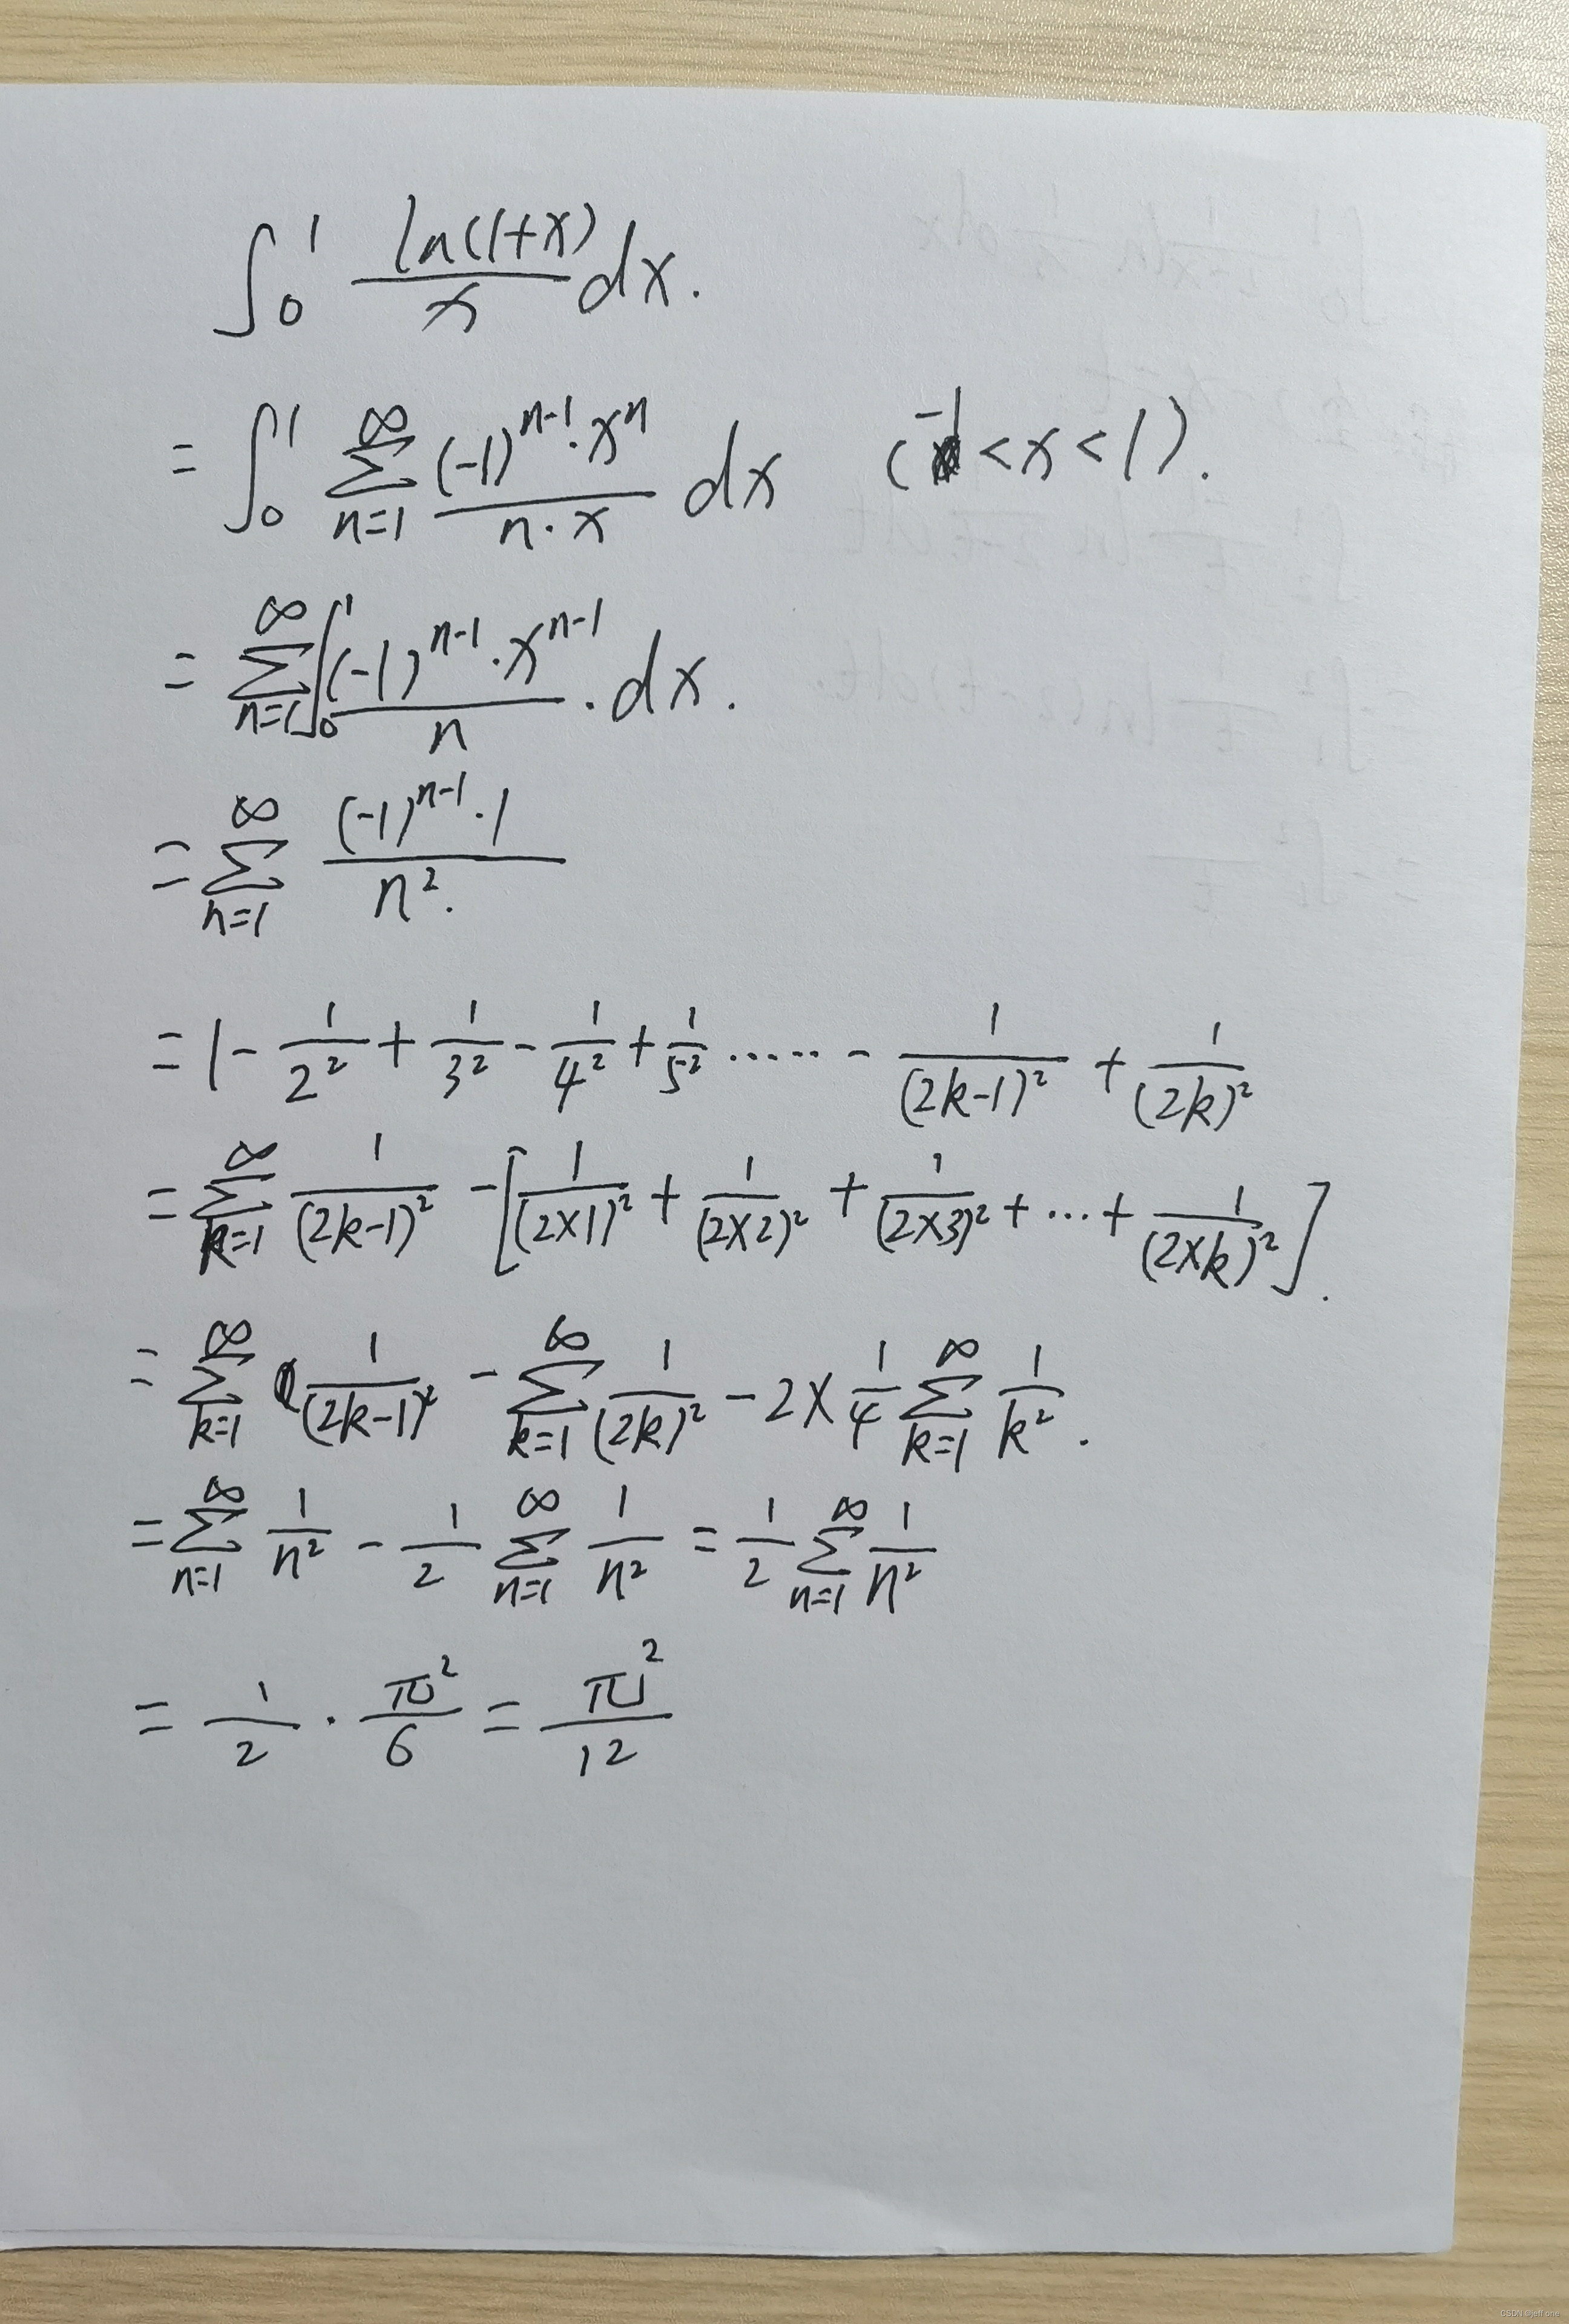 ∫₀¹ ln(1+x)/x dx.
= ∫₀¹ ∑_{n=1}^{∞} (-1)^{n-1}·x^n/(n·x) dx (-1<x<1).
= ∑_{n=1}^{∞} ∫₀¹ (-1)^{n-1}·x^{n-1}/n · dx.
= ∑_{n=1}^{∞} (-1)^{n-1}·1/n².
= 1 - 1/2² + 1/3² - 1/4² + 1/5² ...... - 1/(2k-1)² + 1/(2k)²
= ∑_{k=1}^{∞} 1/(2k-1)² - [1/(2×1)² + 1/(2×2)² + 1/(2×3)² + ... + 1/(2×k)²].
= ∑_{k=1}^{∞} 1/(2k-1)² - ∑_{k=1}^{∞} 1/(2k)² - 2×1/4 ∑_{k=1}^{∞} 1/k².
= ∑_{n=1}^{∞} 1/n² - 1/2 ∑_{n=1}^{∞} 1/n² = 1/2 ∑_{n=1}^{∞} 1/n²
= 1/2 · π²/6 = π²/12
CSDN @jeff one